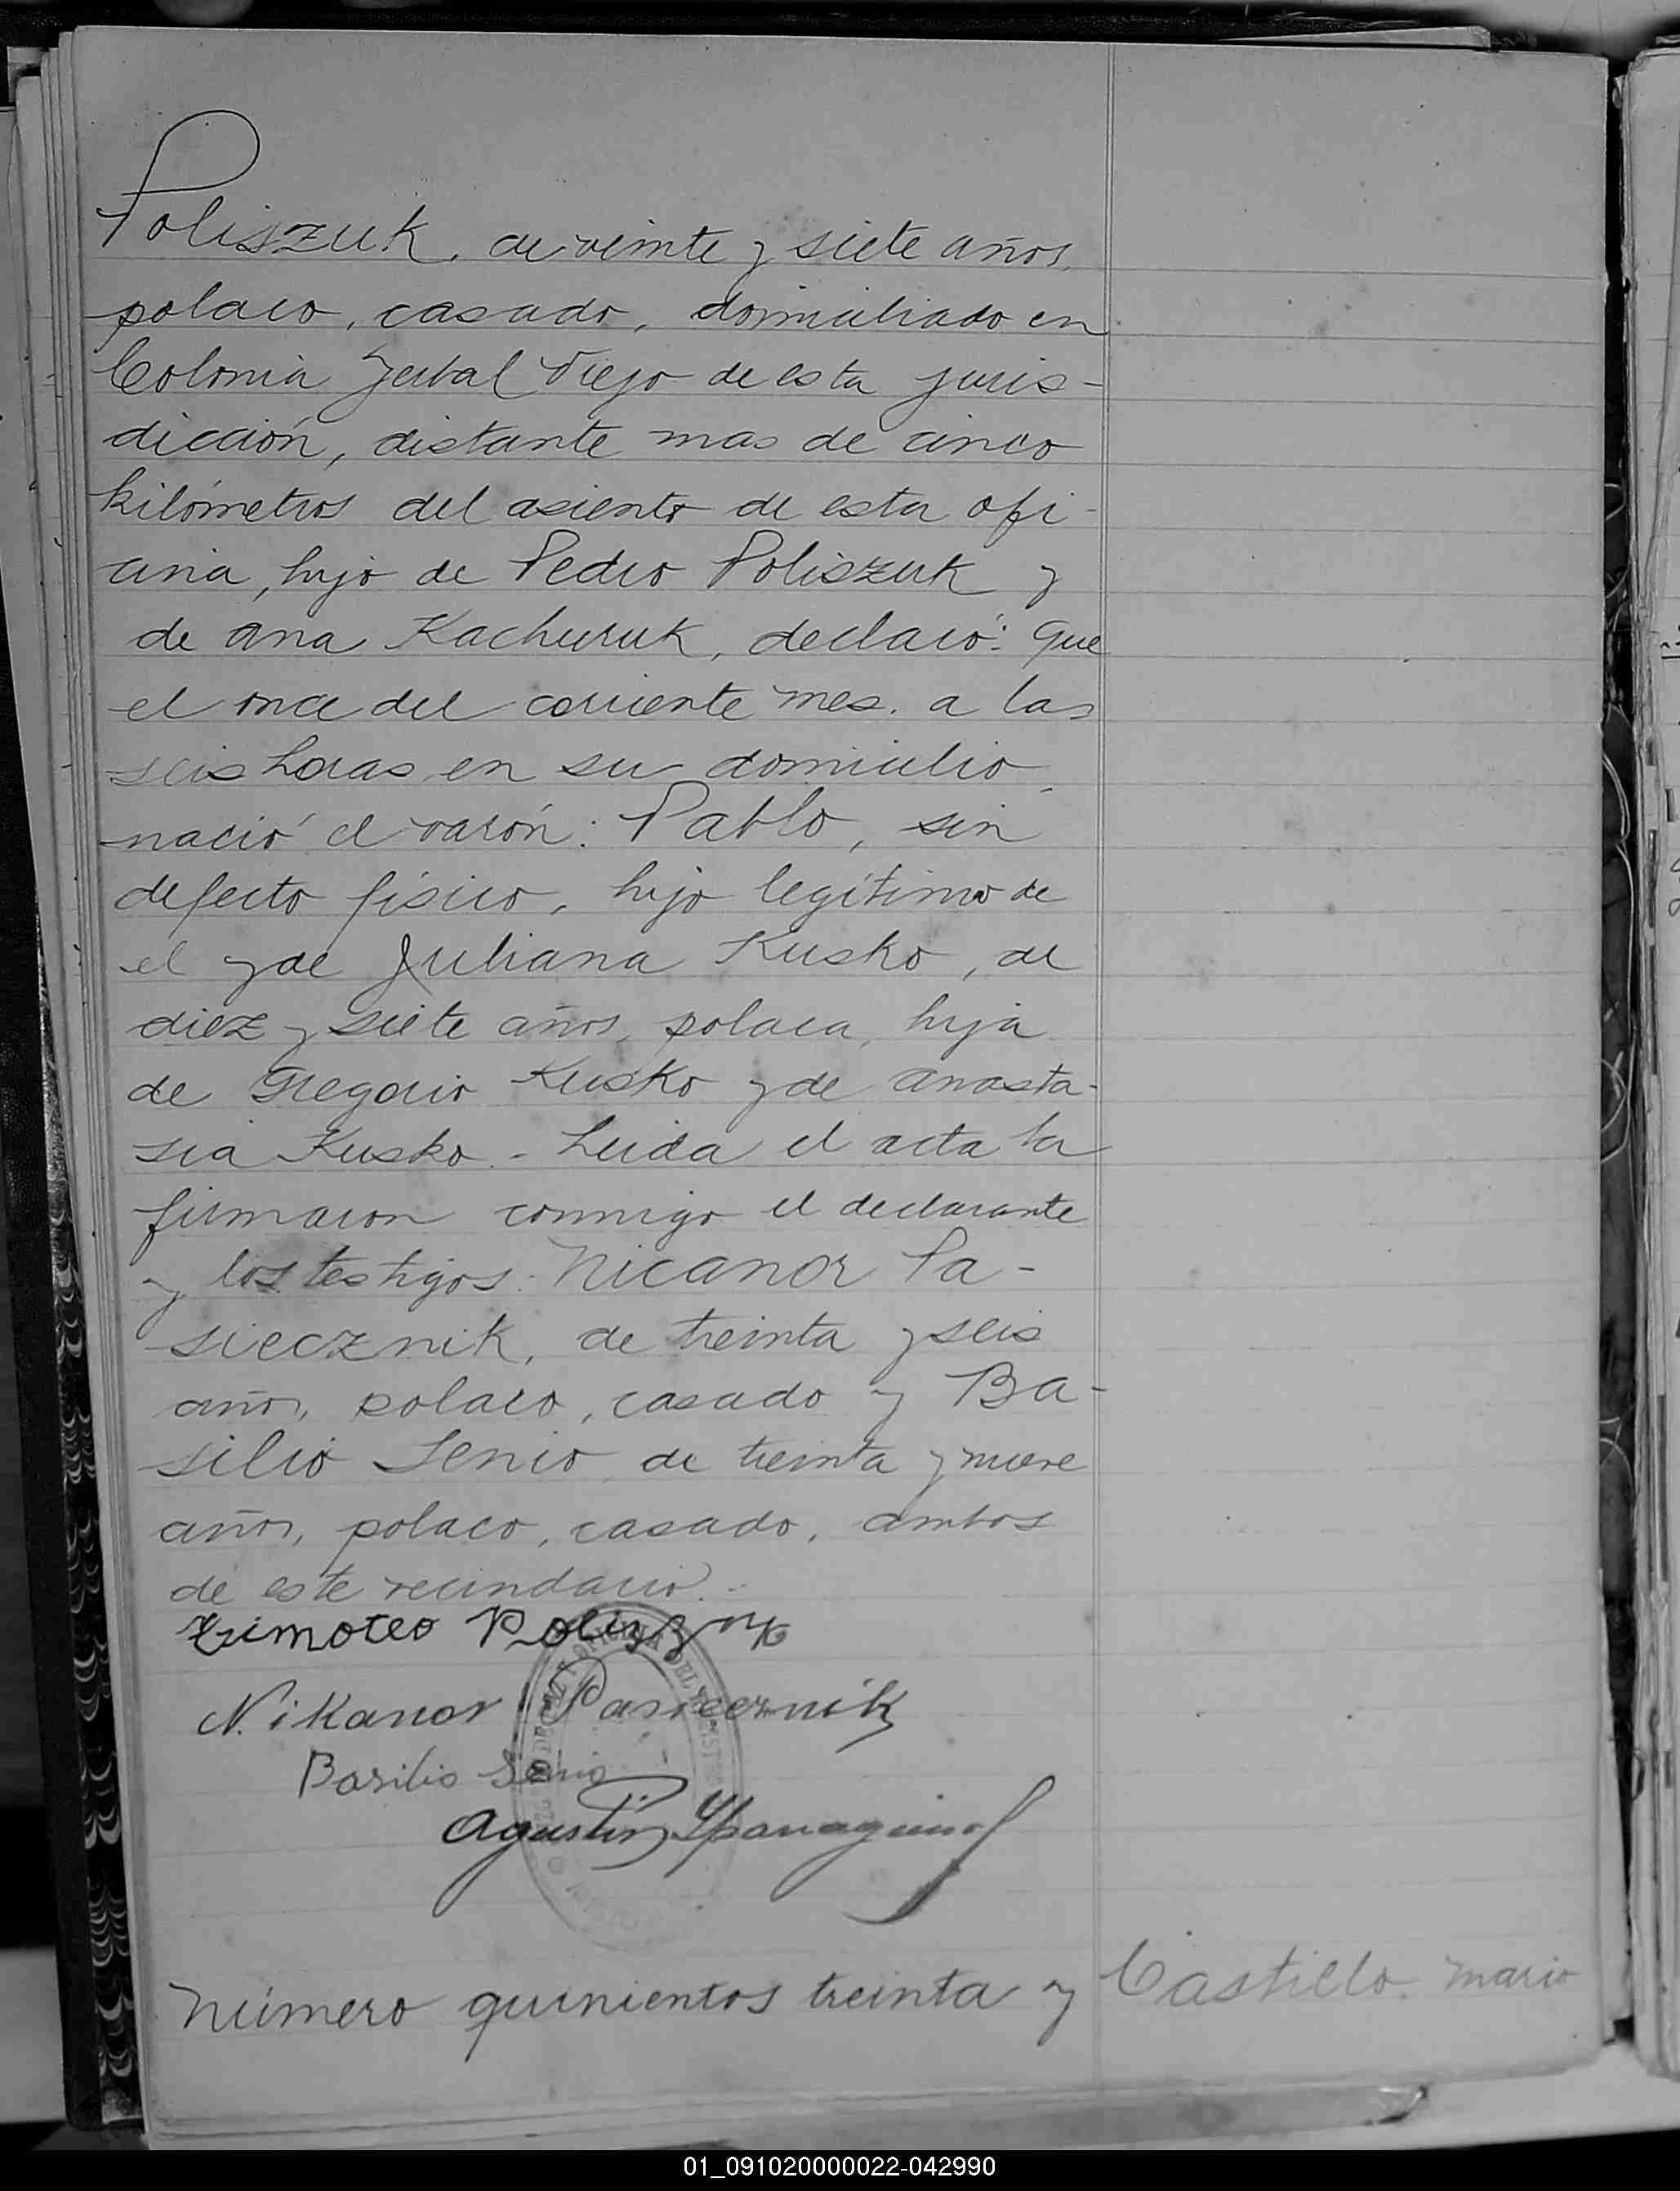 Poliszuk, de veinte y siete años,
polaco, casado, domiciliado en
Colonia Yerbal Viejo de esta juris-
dicción, distante mas de cinco
kilómetros del asiento de esta ofi-
cina, hijo de Pedro Poliszuk y
de Ana Kachuruk, declaró: Que
el once del corriente mes. a las
seis horas, en su domicilio,
nació el varón: Pablo, sin
defecto físico, hijo legítimo de
él y de Juliana Kusko, de
diez y siete años, polaca, hija
de Gregorio Kusko y de Anasta-
sia Kusko.- Leida el acta la
firmaron conmigo el declarante
y los testigos: Nicanor Pa-
siecznik, de treinta y seis
años, polaco, casado y Ba-
silio Senio de treinta y nueve
años, polaco, casado, ambos
de este vecindario.-
Timoteo Poliszuk
Nikanor Pasiecznik
Basilio Senio
Agustín
Número quinientos treinta y
Castillo Mario
01_091020000022-042990